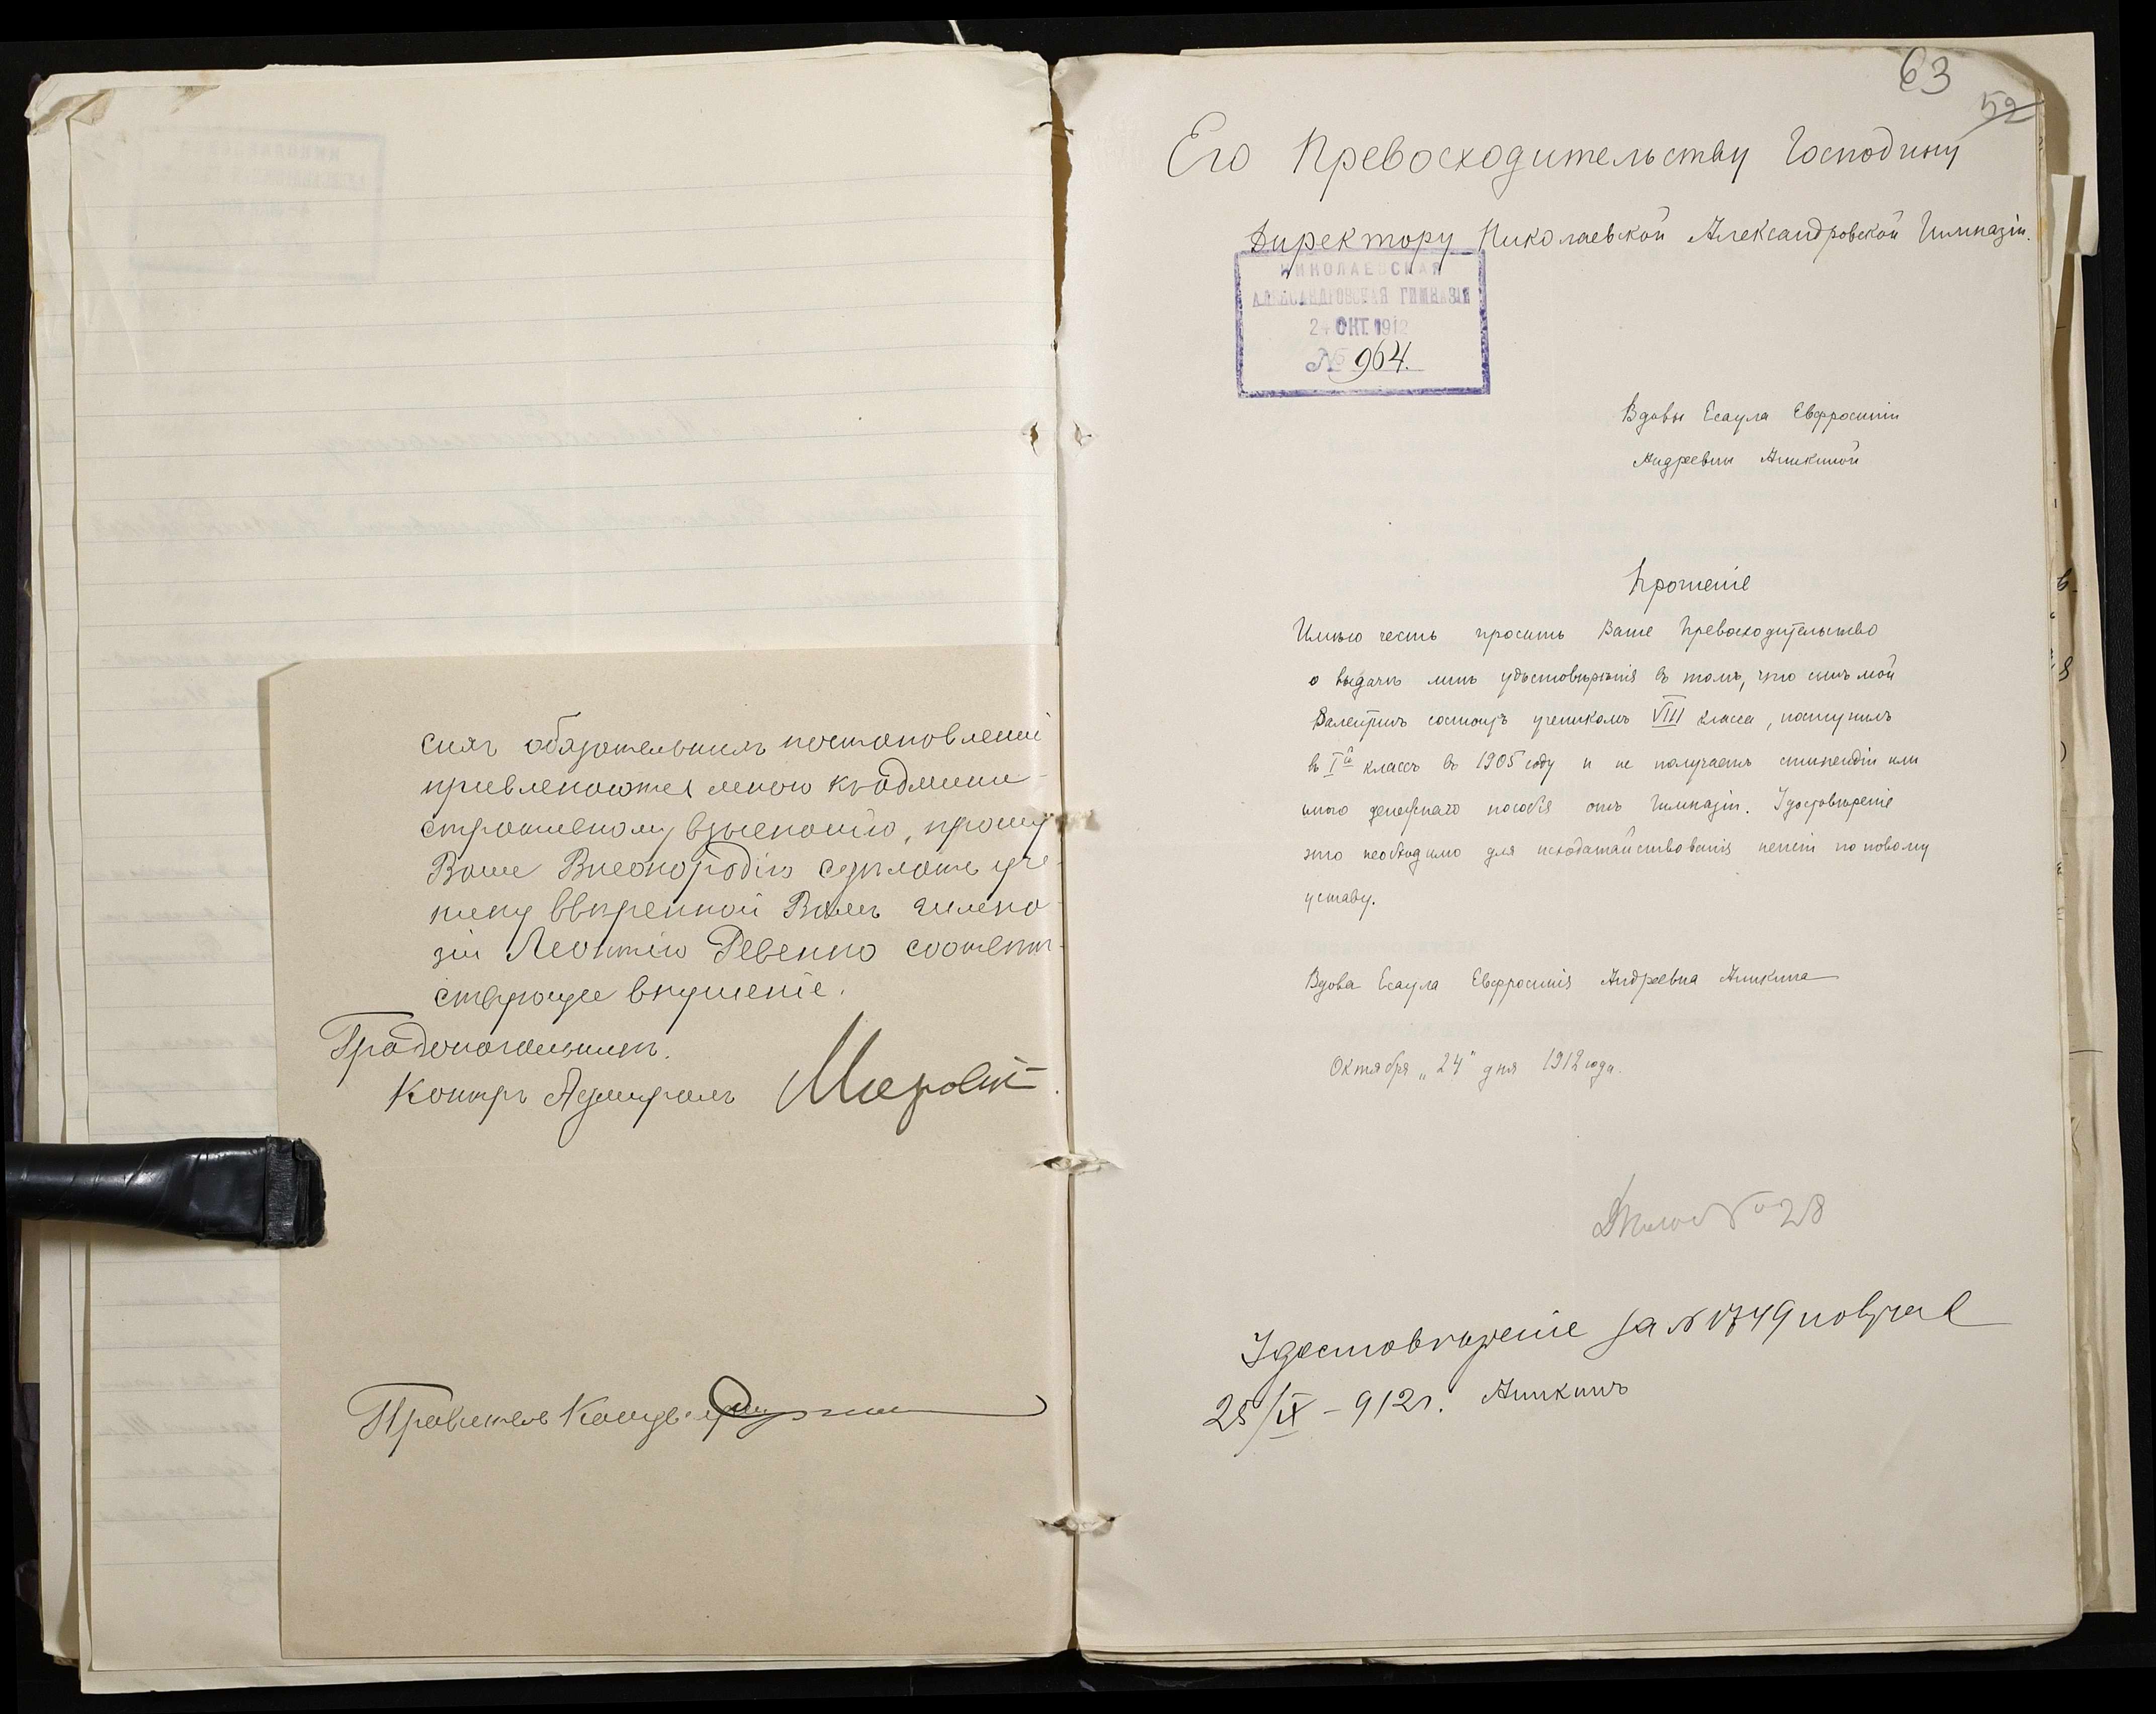 сихъ обязательныхъ постановленій
привлекаются мною къ админи-
стративному взысканію, прошу
Ваше Высокородіе сдѣлать уче-
нику ввѣренной Вамъ гимна-
зіи Леонтію Ревенко соотвѣт-
ствующее внушеніе.
Градоначальникъ,
Контръ Адмиралъ
Правитель Канцел
63
52
Его Превосходительству Господину
Директору Николаевской Александровской Гимназіи.
НИКОЛАЕВСКАЯ
АЛЕКСАНДРОВСКАЯ ГИМНАЗІЯ
24 ОКТ. 1912
№ 964.
Вдовы Есаула Евфросиніи
Андреевны Аникиной
Прошеніе
Имѣю честь просить Ваше Превосходительство
о выдачѣ мнѣ удостовѣренія въ томъ, что сынъ мой
Валентинъ состоитъ ученикомъ VIII класса, поступилъ
въ I й классъ въ 1905 году и не получаетъ стипендіи или
иного денежнаго пособія отъ Гимназіи. Удостовѣреніе
это необходимо для исходатайствованія пенсіи по новому
уставу.
Вдова Есаула Евфросинія Андреевна Аникина
Октября „24" дня 1912 года.
Дѣло № 28
Удостовѣреніе за № 1749 получилъ
25/IX – 912 г. Аникинъ